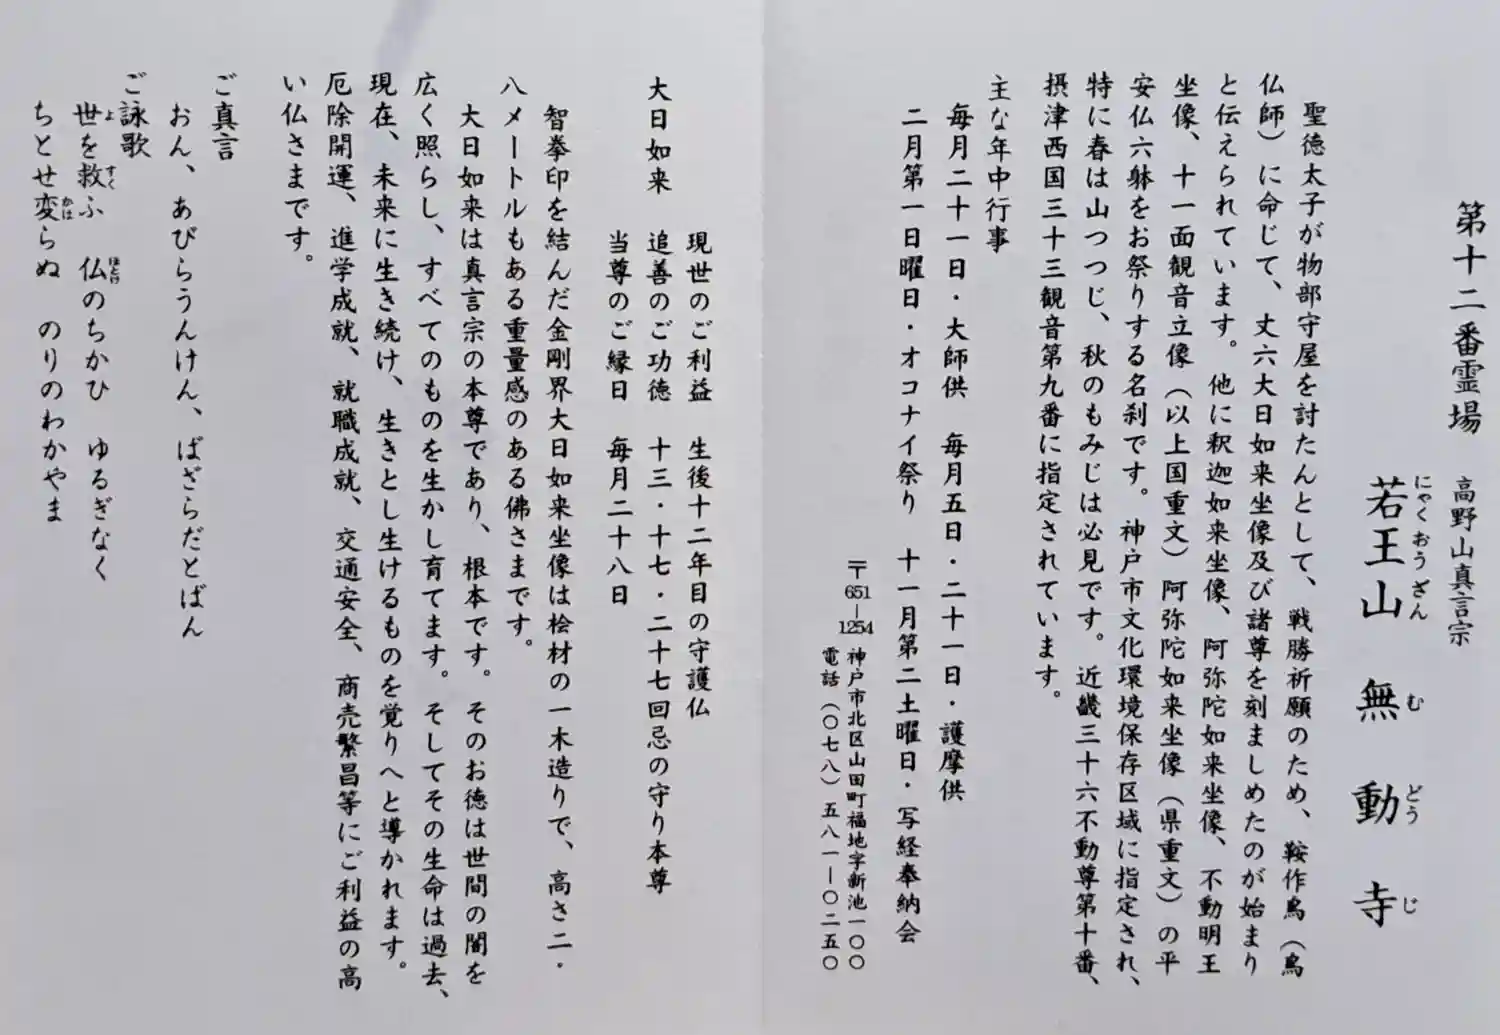 第十二番霊場 高野山真言宗
若王山 無動寺
にゃくおうざん む どう じ
聖徳太子が物部守屋を討たんとして、戦勝祈願のため、鞍作鳥(鳥
仏師)に命じて、丈六大日如来坐像及び諸尊を刻ましめたのが始まり
と伝えられています。他に釈迦如来坐像、阿弥陀如来坐像、不動明王
坐像、十一面観音立像(以上国重文)阿弥陀如来坐像(県重文)の平
安仏六躰をお祭りする名刹です。神戸市文化環境保存区域に指定され、
特に春は山つつじ、秋のもみじは必見です。近畿三十六不動尊第十番、
摂津西国三十三観音第九番に指定されています。
主な年中行事
毎月二十一日・大師供 毎月五日・二十一日・護摩供
二月第一日曜日・オコナイ祭り 十一月第二土曜日・写経奉納会
〒651-1254 神戸市北区山田町福地字新池一〇〇
電話(〇七八)五八一-〇二五〇
現世のご利益 生後十二年目の守護仏
大日如来 追善のご功徳 十三・十七・二十七回忌の守り本尊
当尊のご縁日 毎月二十八日
智拳印を結んだ金剛界大日如来坐像は桧材の一木造りで、高さ二・
八メートルもある重量感のある佛さまです。
大日如来は真言宗の本尊であり、根本です。そのお徳は世間の闇を
広く照らし、すべてのものを生かし育てます。そしてその生命は過去、
現在、未来に生き続け、生きとし生けるものを覚りへと導かれます。
厄除開運、進学成就、就職成就、交通安全、商売繁昌等にご利益の高
い仏さまです。
ご真言
おん、あびらうんけん、ばざらだとばん
ご詠歌
世を救ふ 仏のちかひ ゆるぎなく
よ すく ほとけ
ちとせ変らぬ のりのわかやま
かは